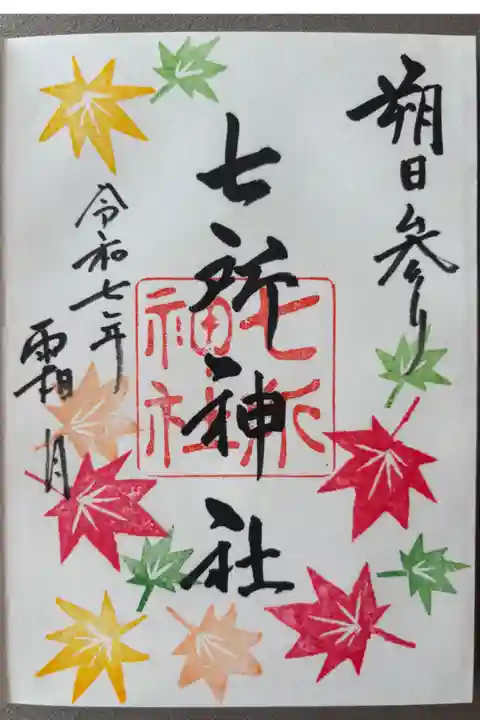 朔日参り
七所神社
七所神社
令和七年
霜月